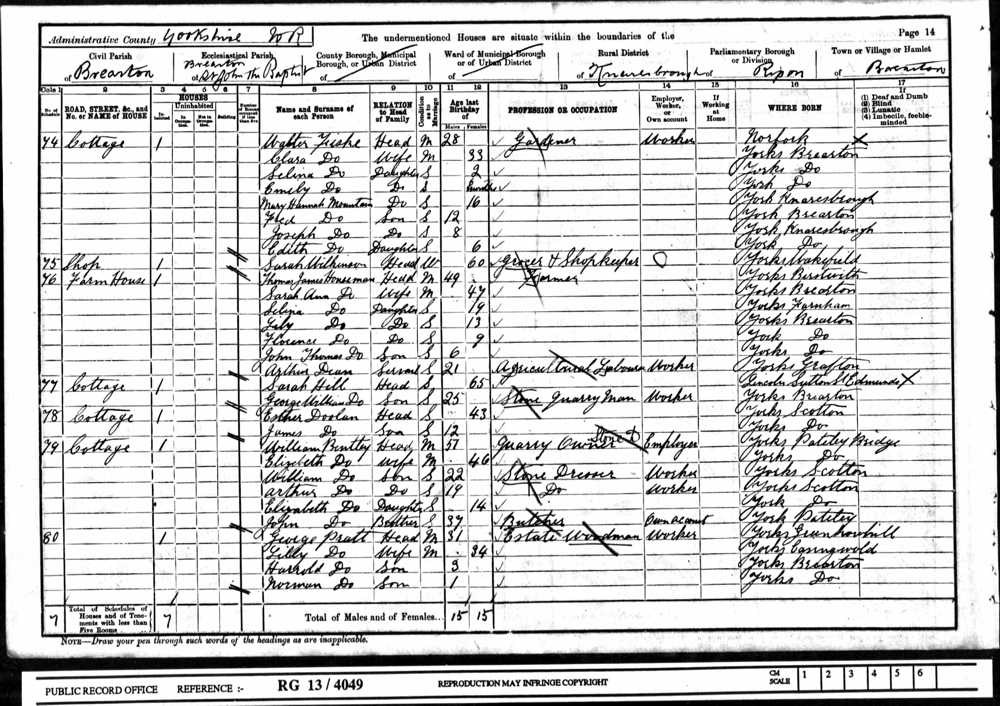 Administrative County Yorkshire W R The undermentioned Houses are situate within the boundaries of the Page 14
Civil Parish of Brearton
Ecclesiastical Parish of Brearton St John the Baptist
County Borough, Municipal Borough, or Urban District
Ward of Municipal Borough or of Urban District of
Rural District of Knaresbrough
Parliamentary Borough or Division of Ripon
Town or Village or Hamlet of Brearton
Cols 1 2 3 4 5 6 7 8 9 10 11 12 13 14 15 16 17
No. of Schedule ROAD, STREET, &c., and No. or NAME of HOUSE HOUSES Inhabited Uninhabited In Occupation Not in Occupation Building Number of Rooms occupied if less than five Name and Surname of each Person RELATION to Head of Family Condition as to Marriage Age last Birthday of Males Females PROFESSION OR OCCUPATION Employer, Worker, or Own account If Working at Home WHERE BORN If (1) Deaf and Dumb (2) Blind (3) Lunatic (4) Imbecile, feeble-minded
74 Cottage 1 Walter Fiske Head M 28 Gardener Worker Norfolk X
Clara Do Wife M 33 Yorks Brearton
Selina Do Daughter S 2 Yorks Do
Emily Do Do S months York Do
Mary Hannah Mountain Do S 16 York Knaresbrough
Fred Do Son S 12 York Brearton
Joseph Do Do S 8 York Knaresbrough
Edith Do Daughter S 6 York Do
75 Shop 1 Sarah Wilkinson Head W 60 Grocer & Shopkeeper Yorks Wakefield
76 Farm House 1 Thomas James Houseman Head M 49 Farmer Yorks
Sarah Ann Do Wife M 47 Yorks Brearton
Selina Do Daughter S 19 Yorks Farnham
Lily Do Do S 13 Yorks Brearton
Florence Do Do S 9 York Do
John Thomas Do Son S 6 Yorks Do
Arthur Dean Servant S 21 Agricultural Labourer Worker Yorks Grafton
77 Cottage 1 Sarah Hill Head S 65 Lincoln Sutton St Edmunds X
George William Do Son S 25 Stone Quarry Man Worker York Brearton
78 Cottage 1 Esther Doolan Head S 43 Yorks Scotton
James Do Son S 12 Yorks Do
79 Cottage 1 William Bentley Head M 51 Quarry Owner Stone Employer Yorks Pateley Bridge
Elizabeth Do Wife M 46 Yorks Do
William Do Son S 22 Stone Dresser Worker Yorks Scotton
Arthur Do Do S 19 Do Worker Yorks Scotton
Elizabeth Do Daughter S 14 York Do
John Do Brother S 37 Butcher Own account York Pateley
80 1 George Pratt Head M 31 Estate Woodman Worker Yorks Greenhowhill
Lilly Do Wife M 34 Yorks Easingwold
Harrold Do Son 3 Yorks Brearton
Norman Do Son 1 Yorks Do
7 Total of Schedules of Houses and of Tenements with less than Five Rooms 7 Total of Males and of Females... 15 15
NOTE—Draw your pen through such words of the headings as are inapplicable.
PUBLIC RECORD OFFICE REFERENCE :- RG 13/4049 REPRODUCTION MAY INFRINGE COPYRIGHT CM SCALE 1 2 3 4 5 6